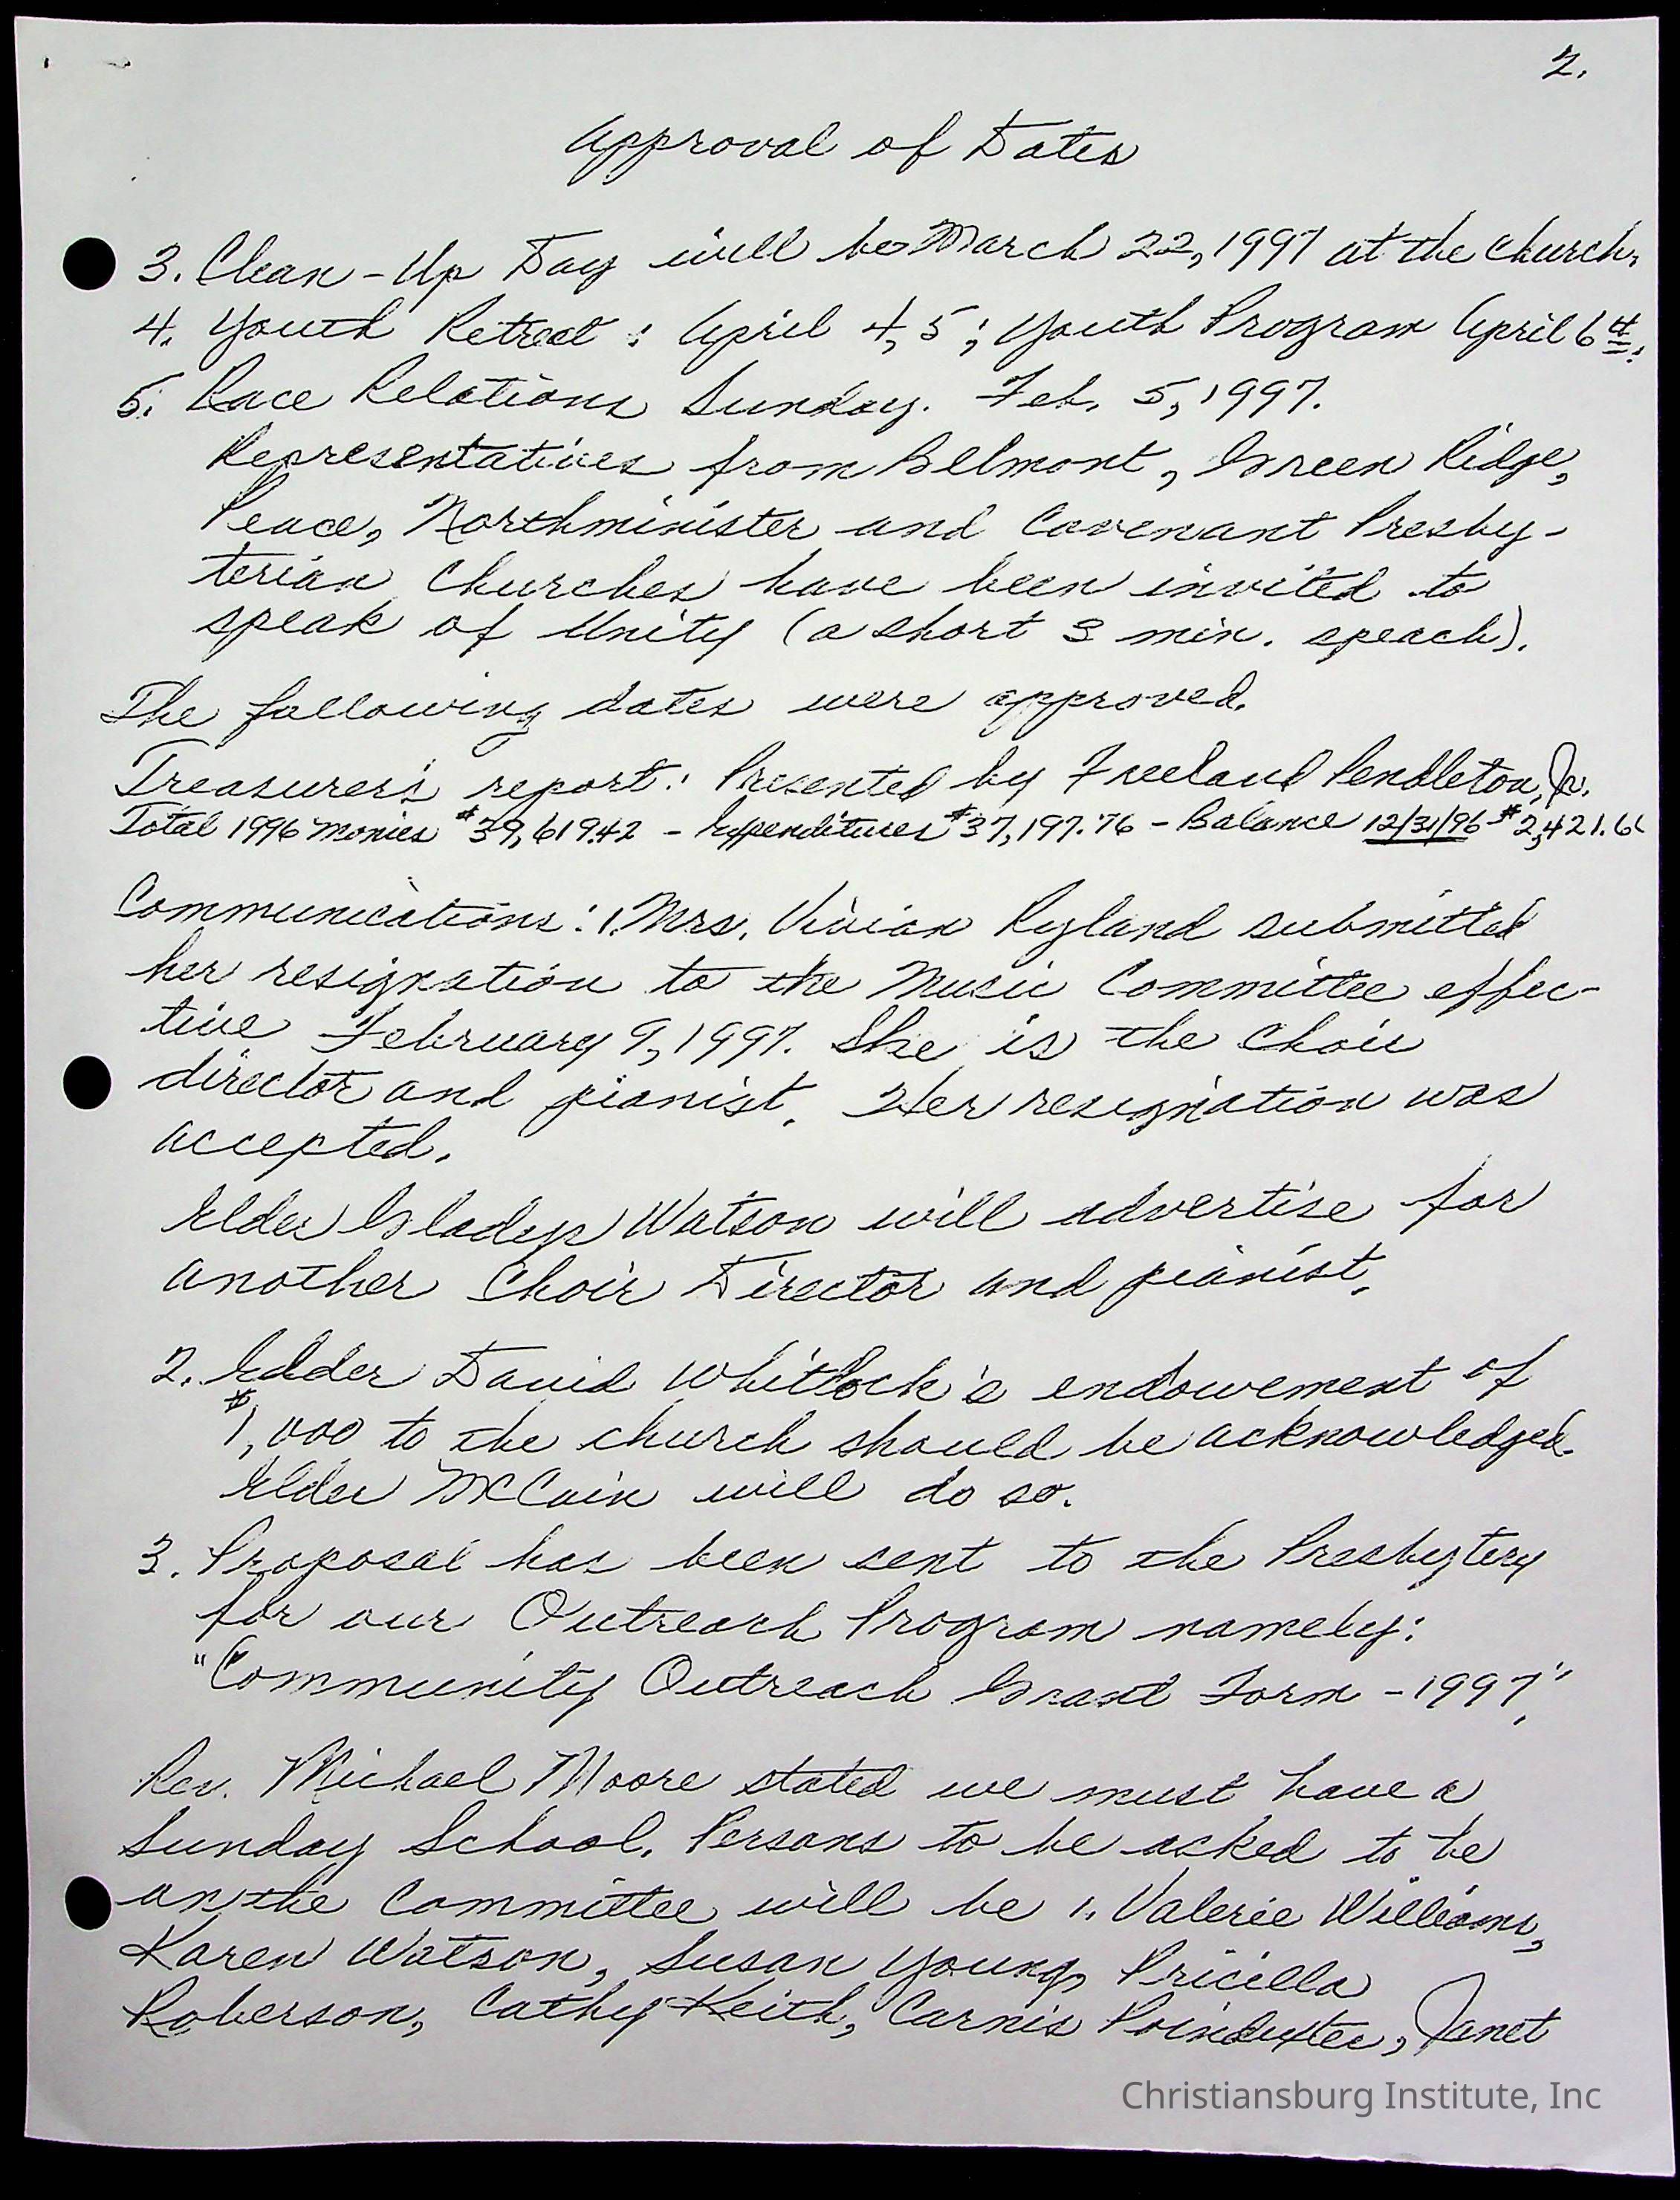 2.
Approval of Dates
3. Clean-Up Day will be March 22, 1997 at the Church.
4. Youth Retreat: April 4, 5; Youth Program April 6th.
5. Race Relations Sunday. Feb. 5, 1997.
Representatives from Belmont, Green Ridge,
Peace, Northminister and Covenant Presby-
terian Churches have been invited to
speak of Unity (a short 3 min. speach).
The following dates were approved.
Treasurer's report: Presented by Freeland Pendleton, Jr.
Total 1996 monies $39,619.42 - Expenditures $37,197.76 - Balance 12/31/96 $2,421.66
Communications: 1. Mrs. Vivian Ryland submitted
her resignation to the Music Committee effec-
tive February 9, 1997. She is the Choir
director and pianist. Her resignation was
accepted.
Elder Gladys Watson will advertise for
another Choir Director and pianist.
2. Edder David Whitlock's endowement of
$1,000 to the church should be acknowledged.
Elder McCain will do so.
3. Proposal has been sent to the Presbytery
for our Outreach Program namely:
"Community Outreach Grant Form - 1997."
Rev. Michael Moore stated we must have a
Sunday School. Persons to be asked to be
on the Committee will be 1. Valerie Williams,
Karen Watson, Susan Young, Pricilla
Roberson, Cathy Keith, Carnis Poindexter, Janet
Christiansburg Institute, Inc